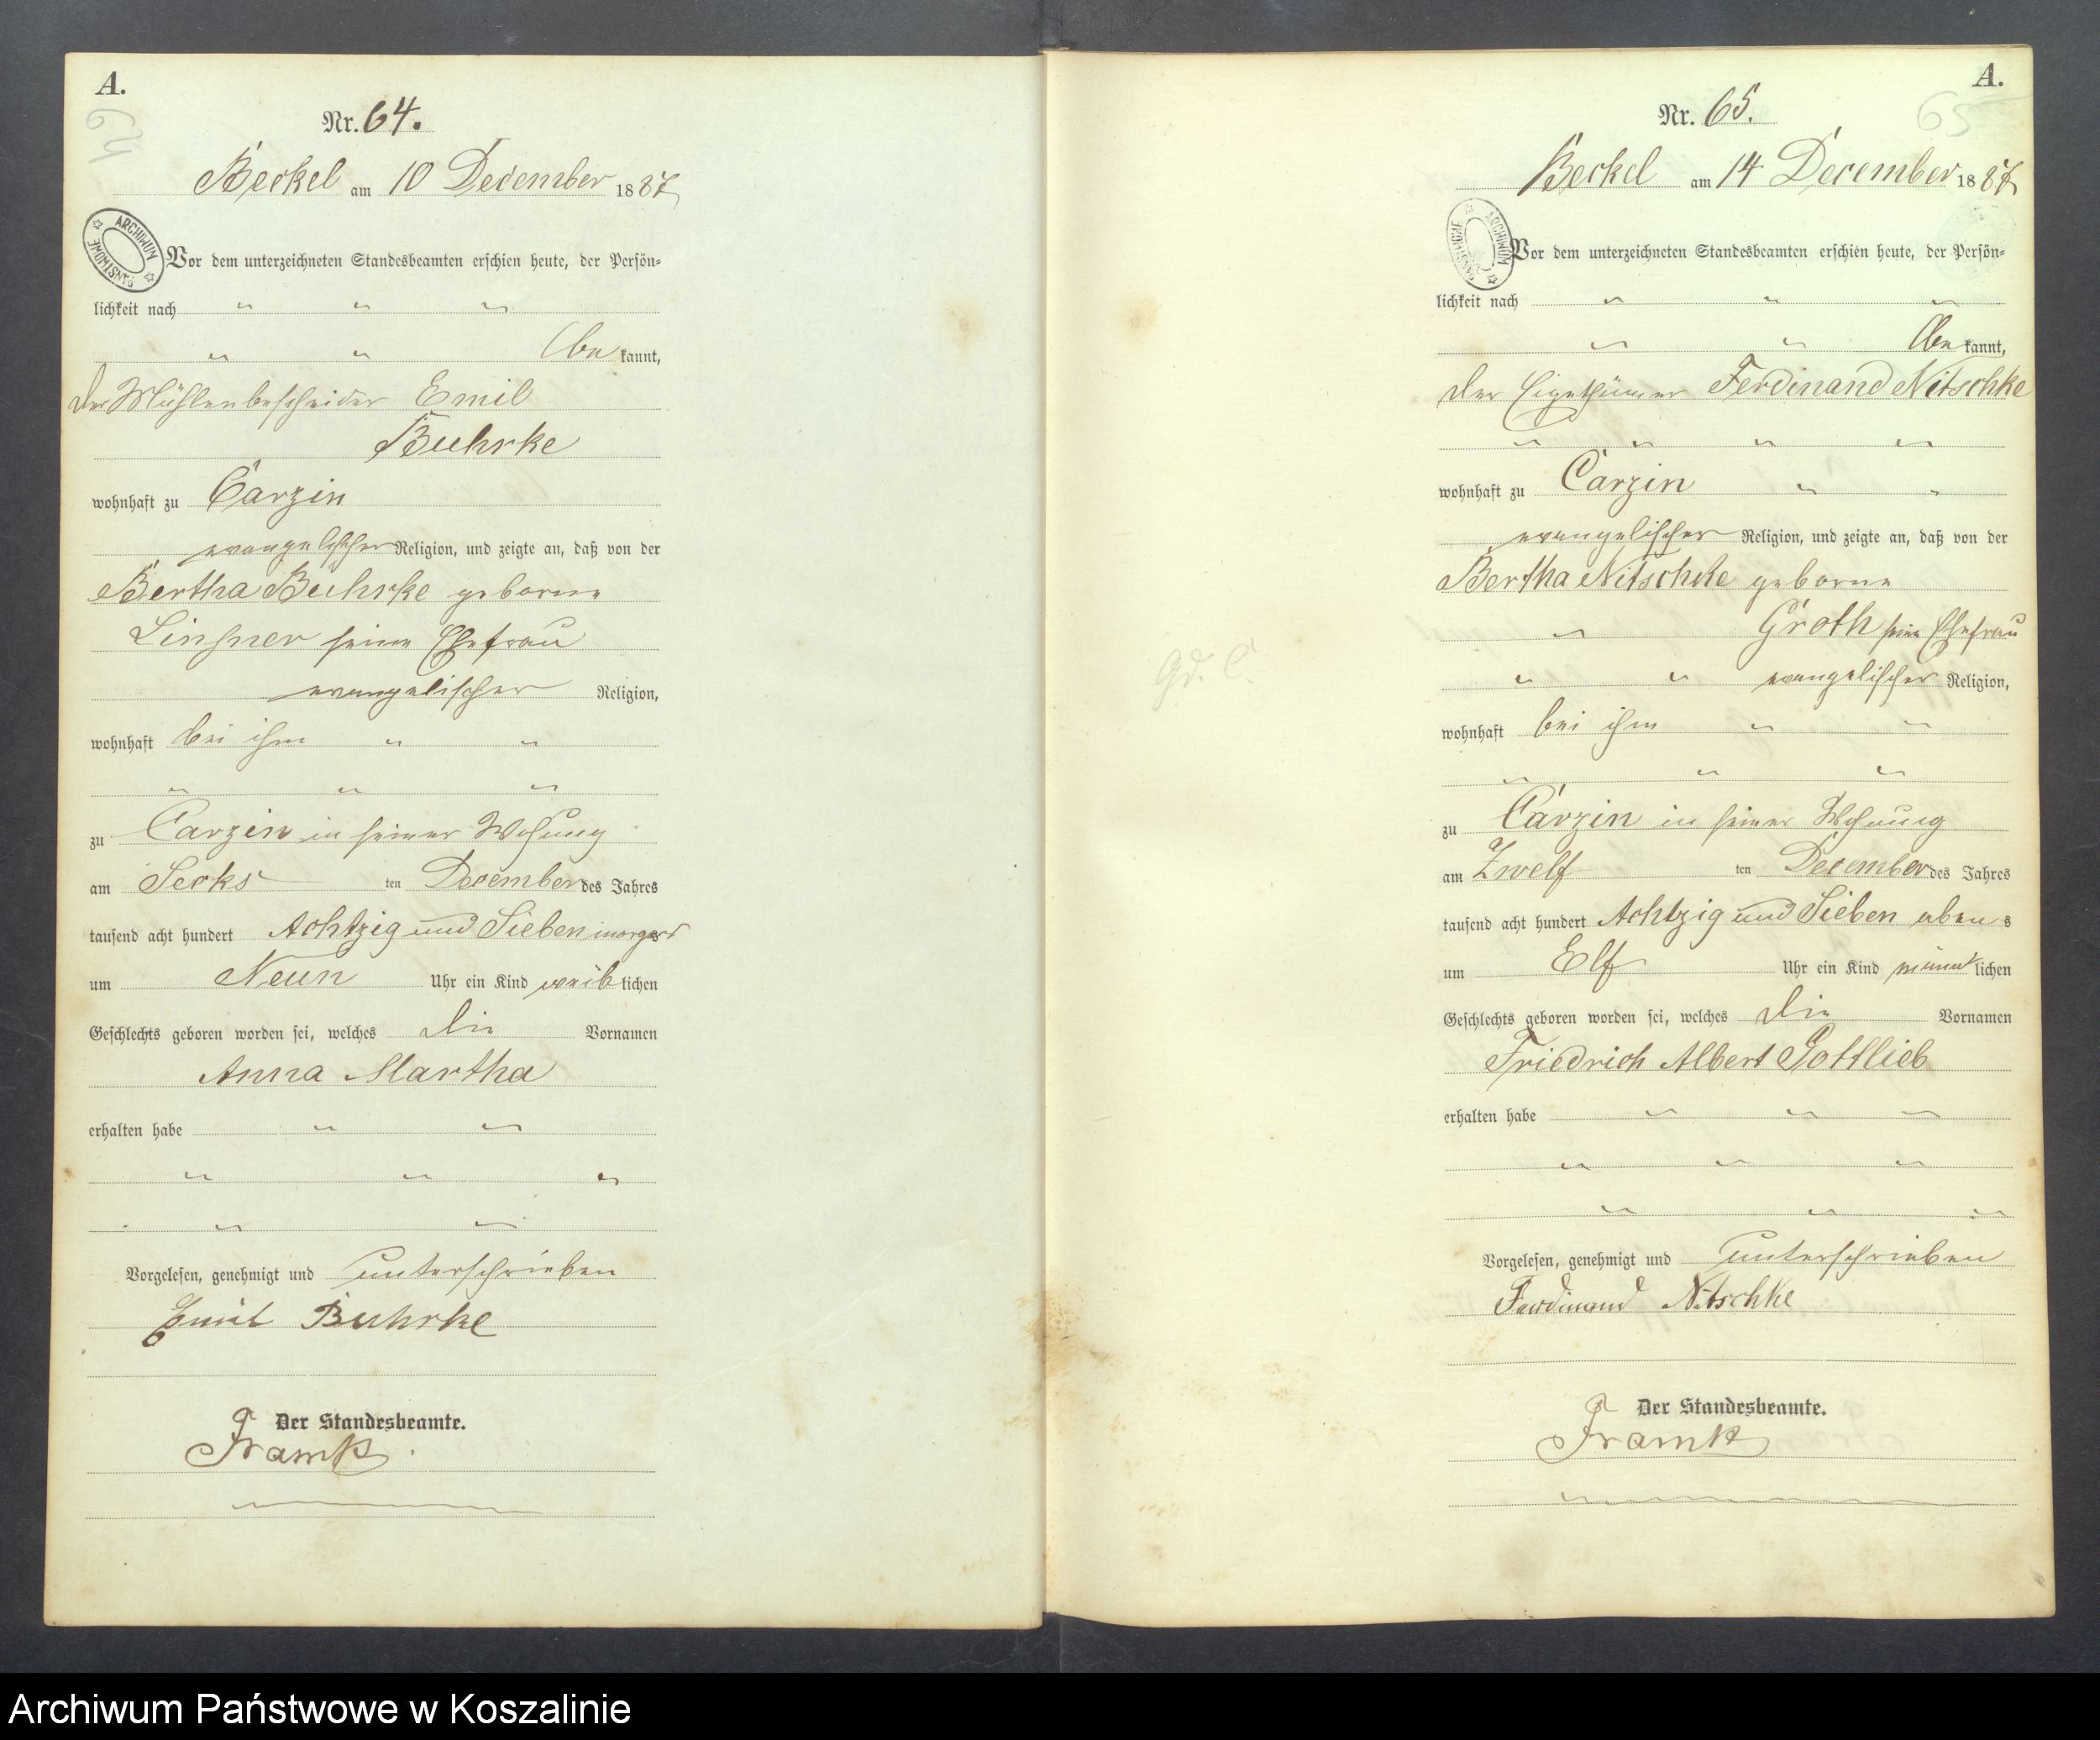 A.
64
Nr. 64.
Beckel am 10 December 1887
ARCHIWUM PAŃSTWOWE
Vor dem unterzeichneten Standesbeamten erschien heute, der Persön-
lichkeit nach " " "
" " bekannt,
der Mühlenbescheider Emil
Buhrke
wohnhaft zu Carzin
evangelischer Religion, und zeigte an, daß von der
Bertha Buhrke geborne
seine Ehefrau
evangelischer Religion,
wohnhaft bei ihm " "
" " "
zu Carzin in seiner Wohung
am Secks ten December des Jahres
tausend acht hundert Achtzig und Sieben morgens
um Neun Uhr ein Kind weiblichen
Geschlechts geboren worden sei, welches die Vornamen
Anna Martha
erhalten habe " "
" " "
" "
Vorgelesen, genehmigt und unterschrieben
Emil Buhrke
Der Standesbeamte.
Framk
A.
65
Nr. 65.
Beckel am 14 December 1887
ARCHIWUM PAŃSTWOWE
Vor dem unterzeichneten Standesbeamten erschien heute, der Persön-
lichkeit nach " " "
" " bekannt,
der Eigethümer Ferdinand Nitschke
" " " "
wohnhaft zu Carzin " "
evangelischer Religion, und zeigte an, daß von der
Bertha Nitschke geborne
" Groth seine Ehefrau
" " evangelischer Religion,
wohnhaft bei ihm " "
" " "
zu Carzin in seiner Wohung
am Zwelf ten December des Jahres
tausend acht hundert Achtzig und Sieben abens
um Elf Uhr ein Kind männlichen
Geschlechts geboren worden sei, welches die Vornamen
Friedrich Albert Gottlieb
erhalten habe " " "
" " "
" " "
Vorgelesen, genehmigt und unterschrieben
Ferdinand Nitschke
Der Standesbeamte.
Framk
Gd. C.
Archiwum Państwowe w Koszalinie